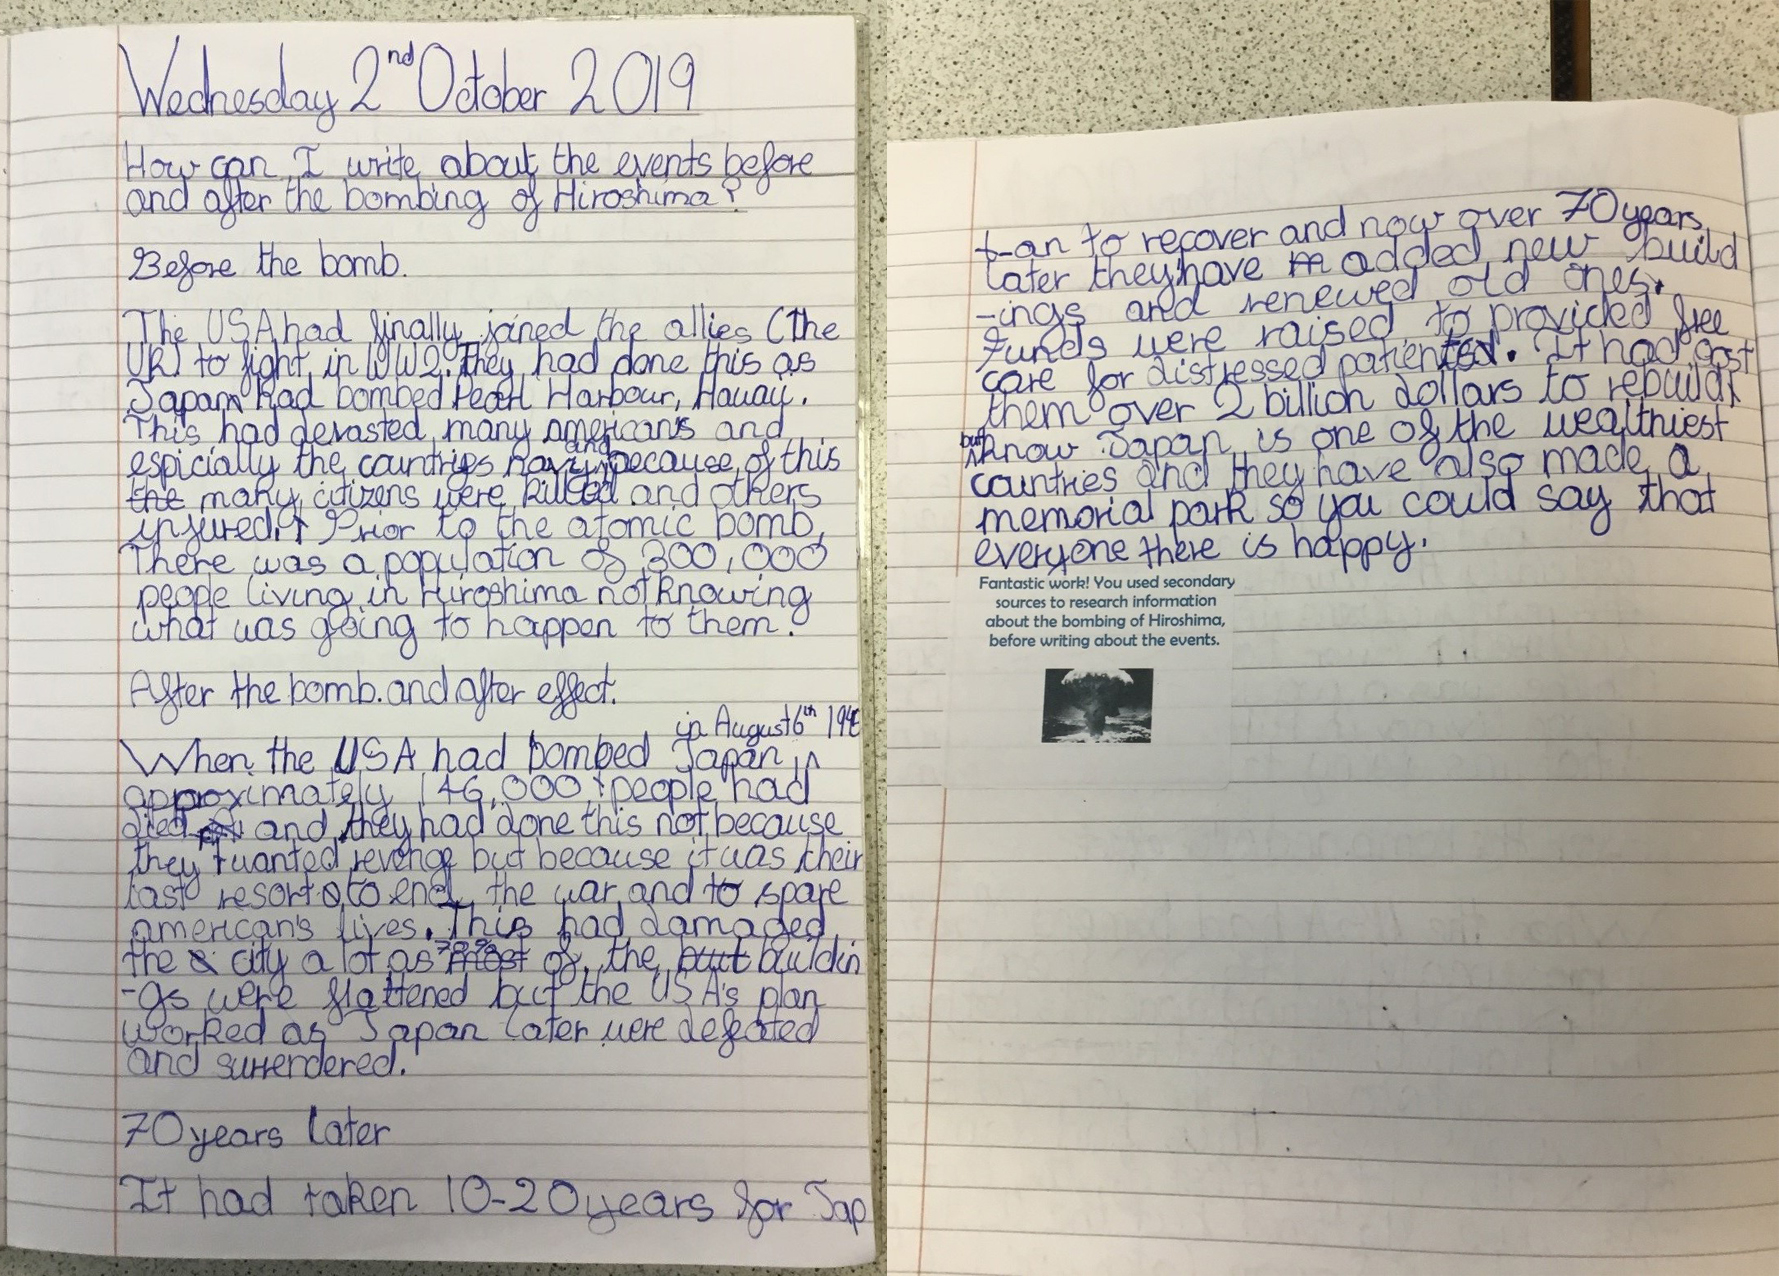 Wednesday 2nd October 2019
How can I write about the events before
and after the bombing of Hiroshima?
Before the bomb.
The USA had finally joined the allies (the
UK) to fight in WW2. They had done this as
Japan had bombed Pearl Harbour, Hauay.
This had devasted many american's and
espicially the countries navy and because of this
the many citizens were killed and others
injured. Prior to the atomic bomb,
There was a population of 300,000
people living in Hiroshima not knowing
what was going to happen to them.
After the bomb.and after effect.
in August 6th 194
When the USA had bombed Japan
approximately 146,000 people had
died and they had done this not because
they wanted revenge but because it was their
last resort to end the war and to spare
american's lives. This had damaged
the city a lot as 70% most of the buildin
-gs were flattened but the USA's plan
worked as Japan later were defeated
and surrendered.
70 years later
It had taken 10-20 years for Jap
-an to recover and now over 70 years
later they have added new build
-ings and renewed old ones.
Funds were raised to provided free
care for distressed patients. It had cost
them over 2 billion dollars to rebuild
but know Japan is one of the wealthiest
countries and they have also made a
memorial park so you could say that
everyone there is happy.
Fantastic work! You used secondary
sources to research information
about the bombing of Hiroshima,
before writing about the events.